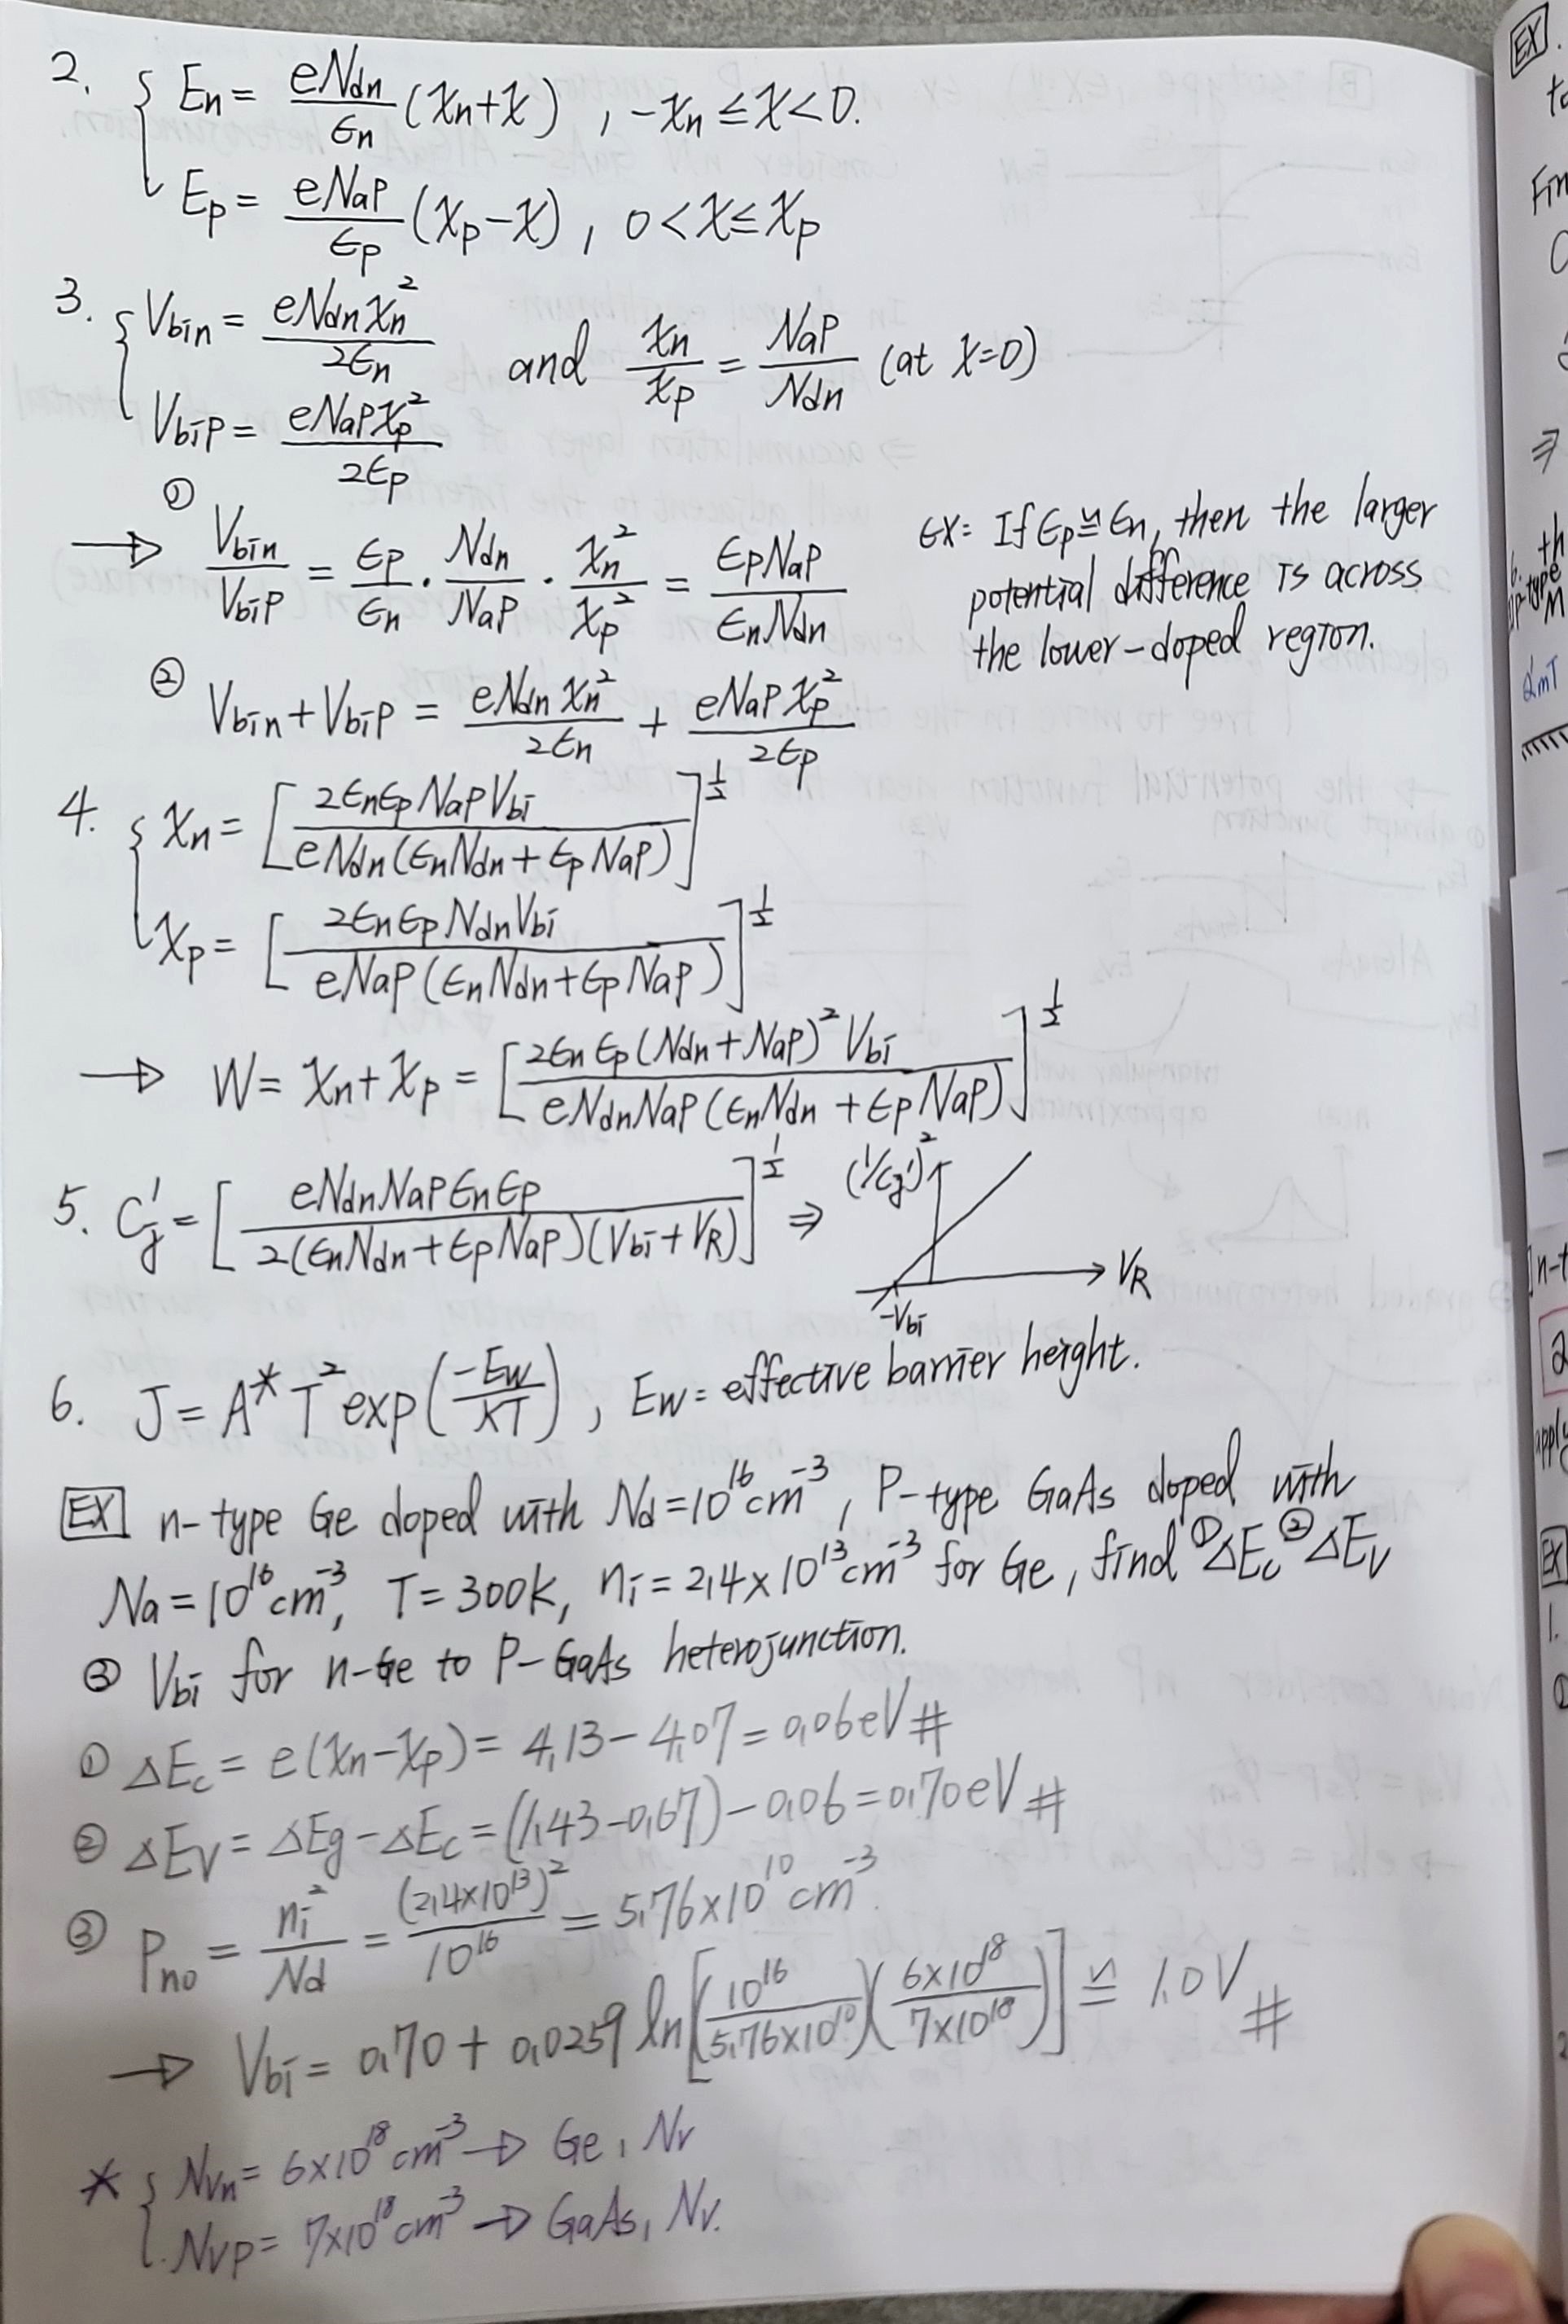 2. { En = eNdn/ϵn (xn+x) , -xn ≤ x < 0.
Ep = eNaP/ϵp (xp-x) , 0 < x ≤ xp
3. { Vbin = eNdn xn²/2ϵn and xn/xp = NaP/Ndn (at x=0)
VbiP = eNaP xp²/2ϵp
① → Vbin/VbiP = ϵp/ϵn · Ndn/NaP · xn²/xp² = ϵpNaP/ϵnNdn
EX: If ϵp ≌ ϵn, then the larger
potential difference is across
the lower-doped region.
② Vbin + VbiP = eNdn xn²/2ϵn + eNaP xp²/2ϵp
4. { xn = [2ϵnϵpNaPVbi / eNdn(ϵnNdn + ϵpNaP)]^½
xp = [2ϵnϵpNdnVbi / eNaP(ϵnNdn + ϵpNaP)]^½
→ W = xn + xp = [2ϵnϵp(Ndn+NaP)²Vbi / eNdnNaP(ϵnNdn + ϵpNaP)]^½
5. Cj' = [eNdnNaPϵnϵp / 2(ϵnNdn + ϵpNaP)(Vbi+VR)]^½ ⇒
(1/Cj')²
VR
-Vbi
6. J = A* T² exp(-Ew/kT) , Ew = effective barrier height.
EX n-type Ge doped with Nd = 10^16 cm^-3, P-type GaAs doped with
Na = 10^16 cm^-3, T = 300K, ni = 2.4×10^13 cm^-3 for Ge, find ①ΔEc ②ΔEv
③ Vbi for n-Ge to P-GaAs heterojunction.
① ΔEc = e(χn-χp) = 4.13 - 4.07 = 0.06eV #
② ΔEv = ΔEg - ΔEc = (1.43-0.67) - 0.06 = 0.70eV #
③ Pno = ni²/Nd = (2.4×10^13)²/10^16 = 5.76×10^10 cm^-3
→ Vbi = 0.70 + 0.0259 ln[(10^16/5.76×10^10)(6×10^18/7×10^18)] ≌ 1.0V #
* { Nvn = 6×10^18 cm^-3 → Ge, Nv
Nvp = 7×10^18 cm^-3 → GaAs, Nv.